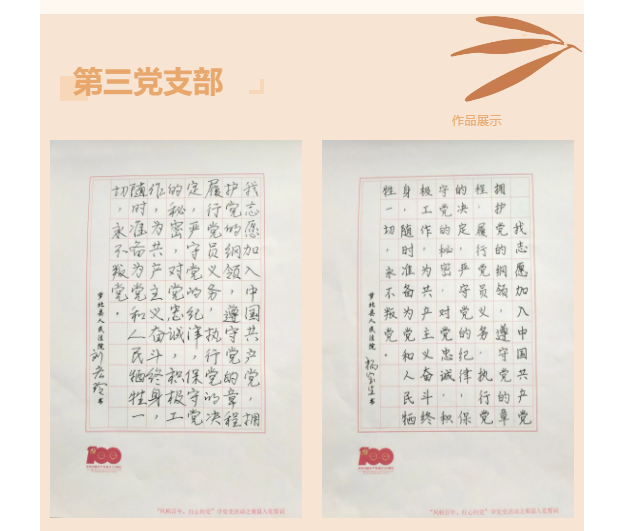 第三党支部
作品展示
我志愿加入中国共产党，拥
护党的纲领，遵守党的章程
履行党员义务，执行党的决
定，严守党的纪律，保守党
的秘密，对党忠诚，积极工
作，为共产主义奋斗终身，
随时准备为党和人民牺牲一
切，永不叛党。
萝北县人民法院 书
100
我志愿加入中国共产党
拥护党的纲领，遵守党的章
程，履行党员义务，执行党
的决定，严守党的纪律，保
守党的秘密，对党忠诚，积
极工作，为共产主义奋斗终
身，随时准备为党和人民牺
牲一切，永不叛党。
萝北县人民法院 书
100